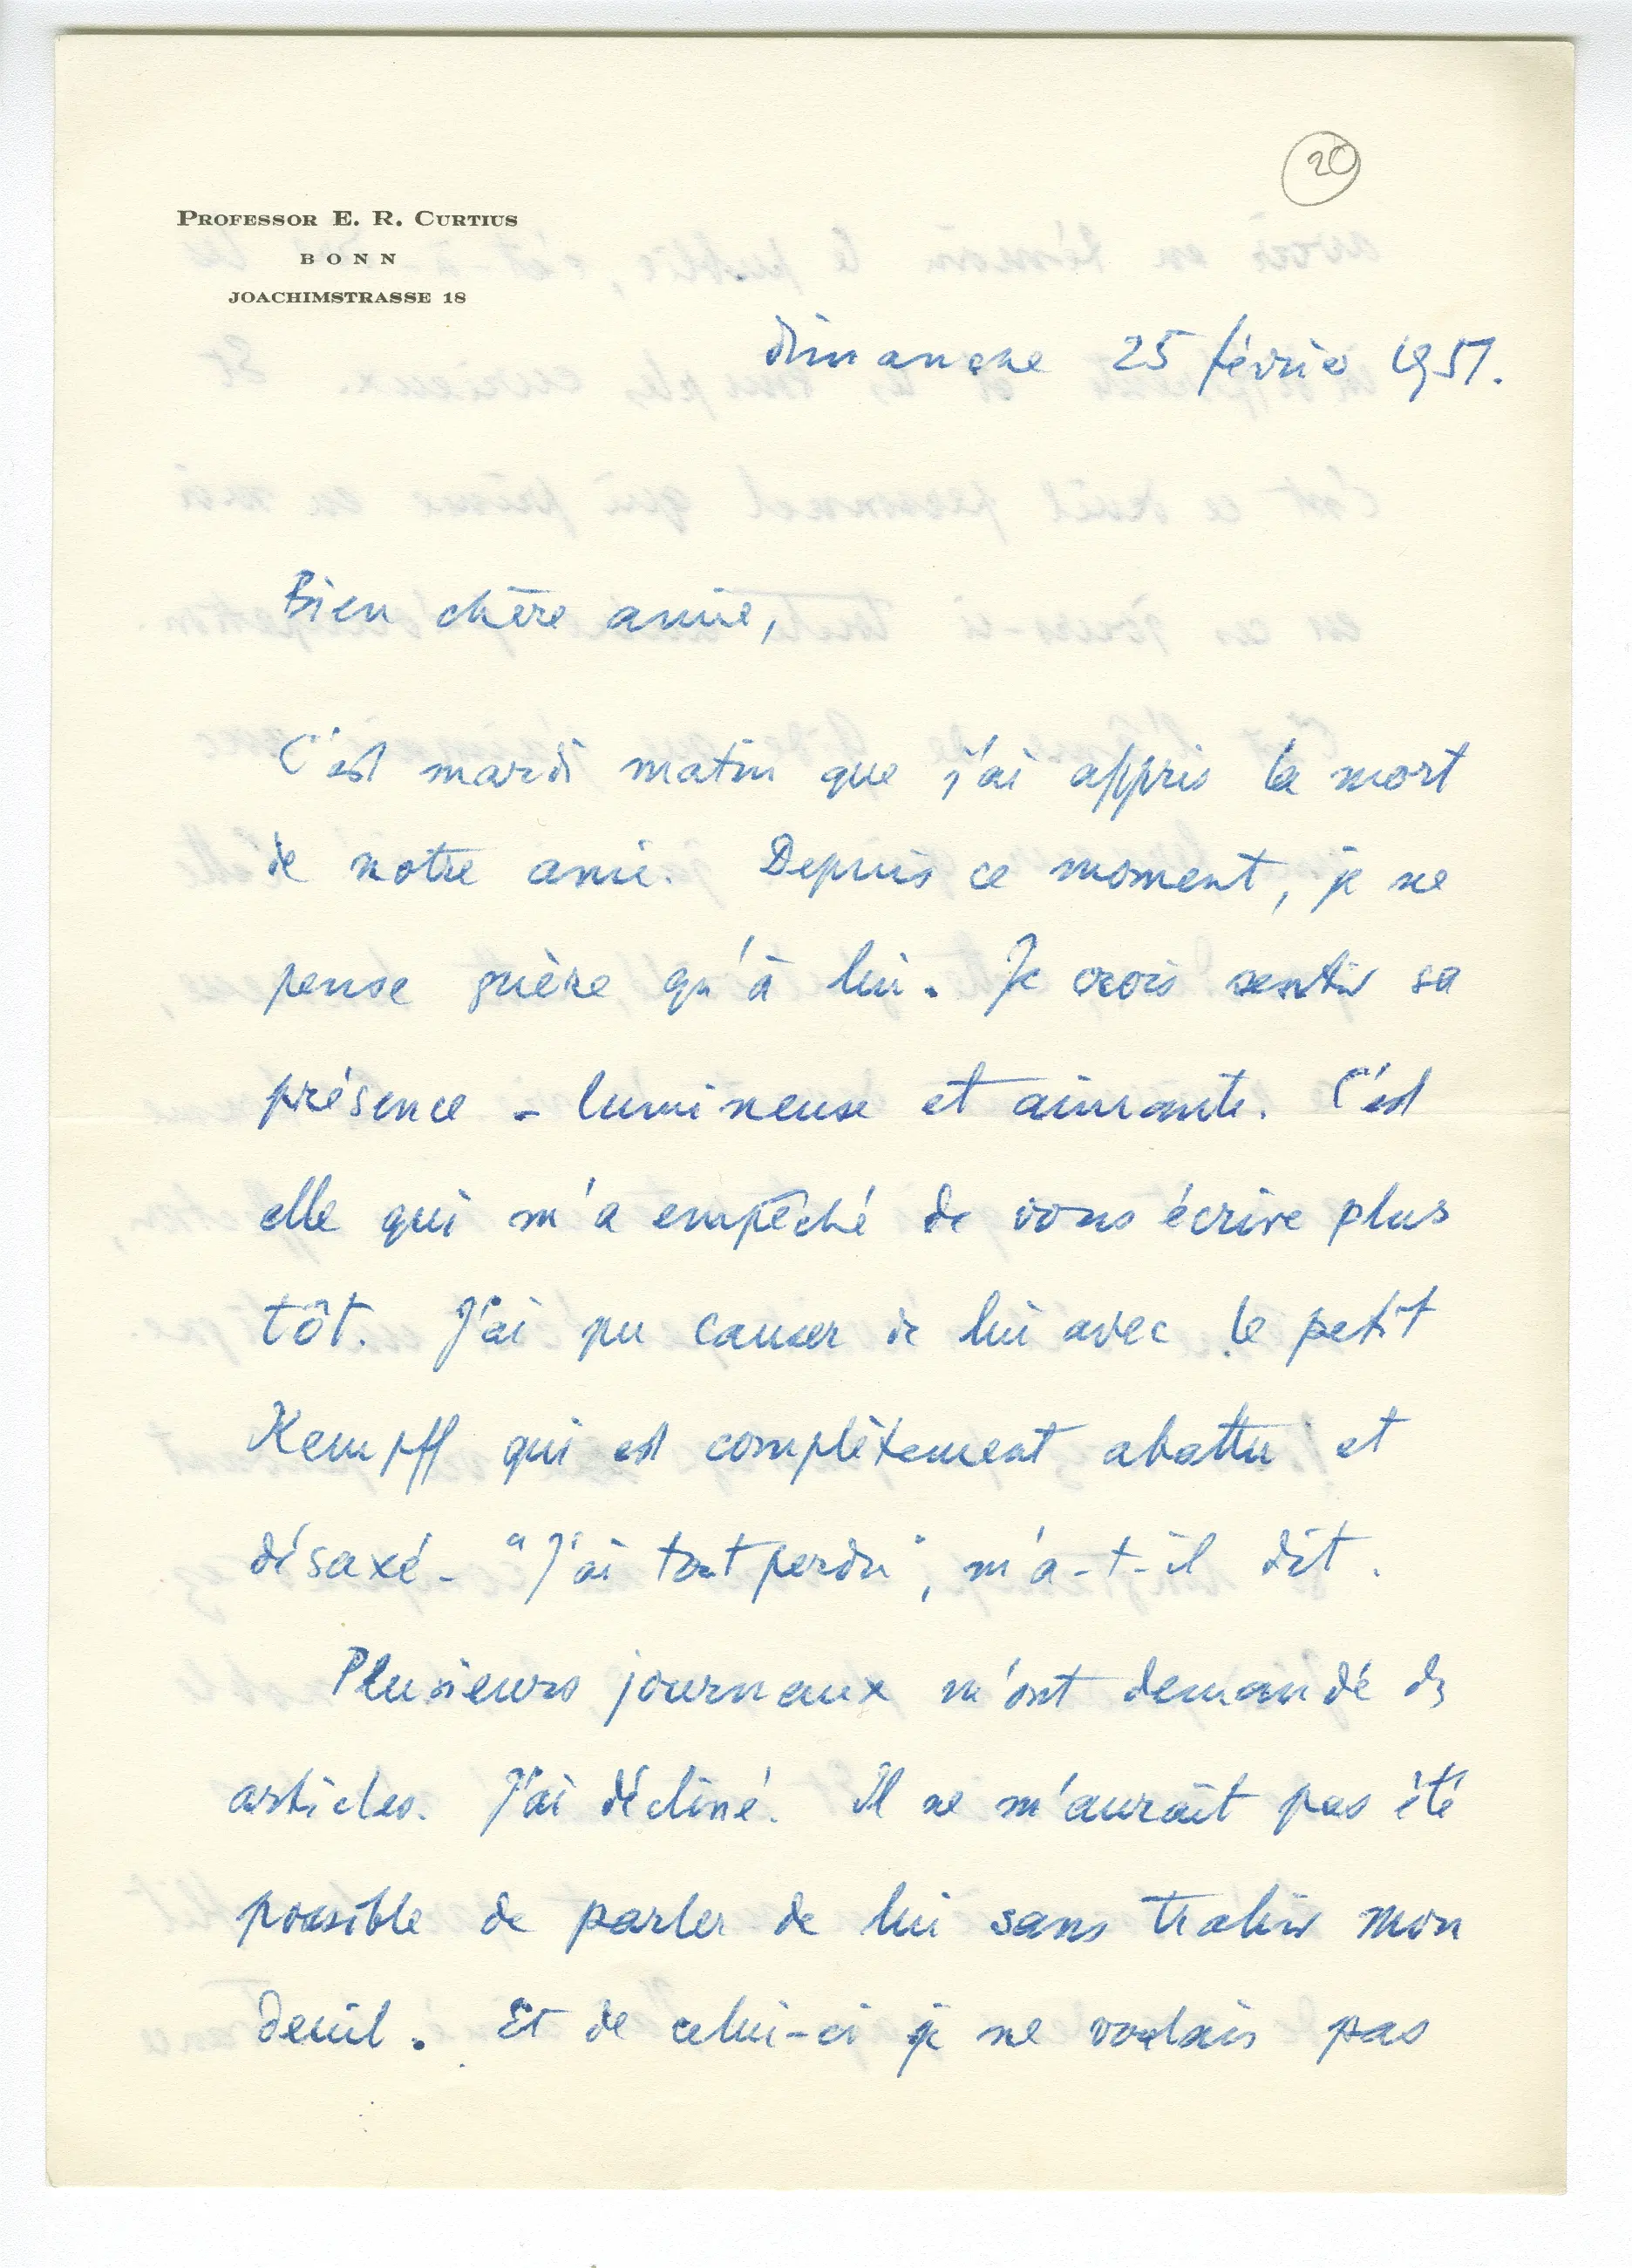 20
PROFESSOR E. R. CURTIUS
BONN
JOACHIMSTRASSE 18
dimanche 25 février 1951.
Bien chère amie,
C'est mardi matin que j'ai appris la mort
de notre ami. Depuis ce moment, je ne
pense guère qu'à lui. Je crois sentir sa
présence - lumineuse et aimante. C'est
elle qui m'a empêché de vous écrire plus
tôt. J'ai pu causer de lui avec le petit
Kempff qui est complètement abattu et
désaxé - "J'ai tout perdu", m'a-t-il dit.
Plusieurs journaux m'ont demandé des
articles. J'ai décliné. Il ne m'aurait pas été
possible de parler de lui sans trahir mon
deuil. Et de celui-ci je ne voulais pas